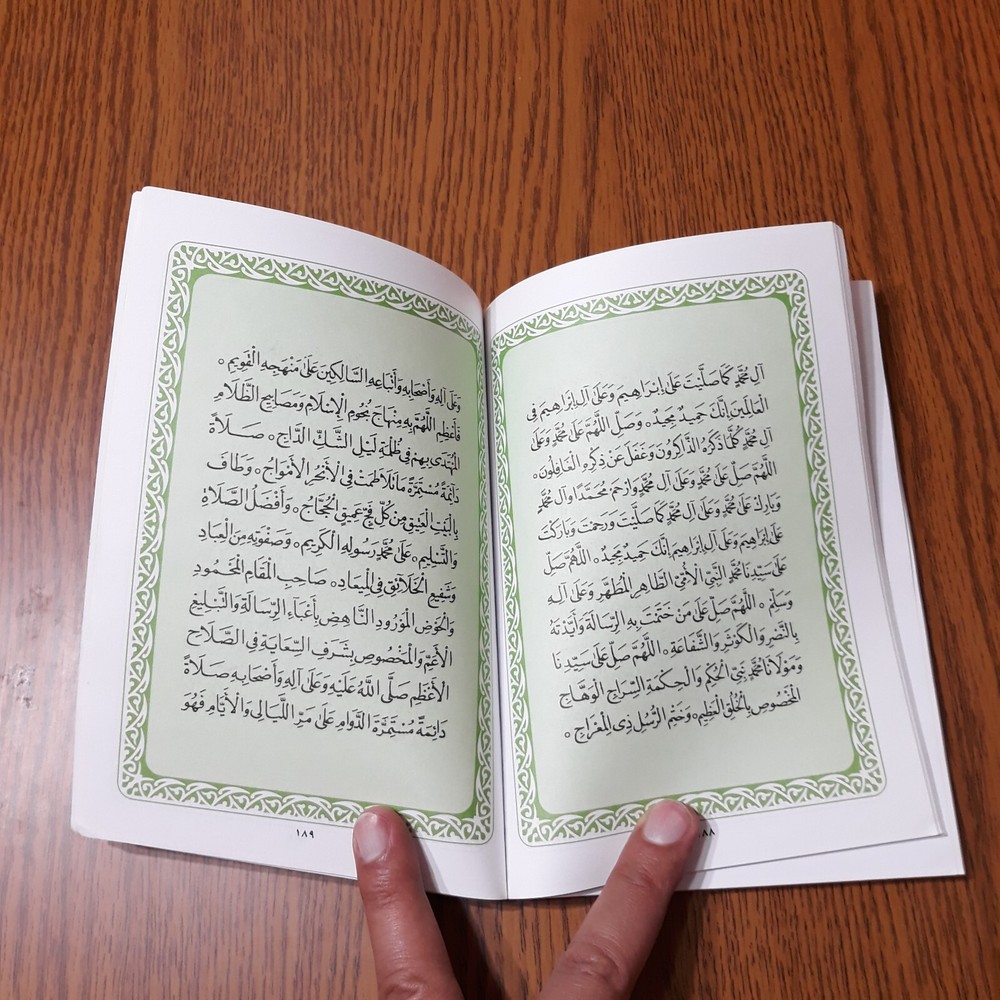 آلِ مُحَمَّدٍ كَمَا صَلَّيْتَ عَلَى إِبْرَاهِيمَ وَعَلَى آلِ إِبْرَاهِيمَ فِي
الْعَالَمِينَ إِنَّكَ حَمِيدٌ مَجِيدٌ ۰ وَصَلِّ اللَّهُمَّ عَلَى مُحَمَّدٍ وَعَلَى
آلِ مُحَمَّدٍ كُلَّمَا ذَكَرَهُ الذَّاكِرُونَ وَغَفَلَ عَنْ ذِكْرِهِ الْغَافِلُونَ ۰
اللَّهُمَّ صَلِّ عَلَى مُحَمَّدٍ وَعَلَى آلِ مُحَمَّدٍ وَارْحَمْ مُحَمَّدًا وَآلَ مُحَمَّدٍ
وَبَارِكْ عَلَى مُحَمَّدٍ وَعَلَى آلِ مُحَمَّدٍ كَمَا صَلَّيْتَ وَرَحِمْتَ وَبَارَكْتَ
عَلَى إِبْرَاهِيمَ وَعَلَى آلِ إِبْرَاهِيمَ إِنَّكَ حَمِيدٌ مَجِيدٌ ۰ اللَّهُمَّ صَلِّ
عَلَى سَيِّدِنَا مُحَمَّدٍ النَّبِيِّ الْأُمِّيِّ الطَّاهِرِ الْمُطَهَّرِ وَعَلَى آلِهِ
وَسَلِّمْ ۰ اللَّهُمَّ صَلِّ عَلَى مَنْ خَتَمْتَ بِهِ الرِّسَالَةَ وَأَيَّدْتَهُ
بِالنَّصْرِ وَالْكَوْثَرِ وَالشَّفَاعَةِ ۰ اللَّهُمَّ صَلِّ عَلَى سَيِّدِنَا
وَمَوْلَانَا مُحَمَّدٍ نَبِيِّ الْحُكْمِ وَالْحِكْمَةِ السِّرَاجِ الْوَهَّاجِ
الْمَخْصُوصِ بِالْخُلُقِ الْعَظِيمِ ۰ وَخَتْمِ الرُّسُلِ ذِي الْمِعْرَاجِ ۰
وَعَلَى آلِهِ وَأَصْحَابِهِ وَأَتْبَاعِهِ السَّالِكِينَ عَلَى مَنْهَجِهِ الْقَوِيمِ ۰
فَأَعْظِمِ اللَّهُمَّ بِهِ مِنْهَاجَ نُجُومِ الْإِسْلَامِ وَمَصَابِيحِ الظَّلَامِ
الْمُهْتَدَى بِهِمْ فِي ظُلْمَةِ لَيْلِ الشَّكِّ الدَّاجِ ۰ صَلَاةً
دَائِمَةً مُسْتَمِرَّةً مَا تَلَاطَمَتْ فِي الْأَبْحُرِ الْأَمْوَاجُ ۰ وَطَافَ
بِالْبَيْتِ الْعَتِيقِ مِنْ كُلِّ فَجٍّ عَمِيقٍ الْحُجَّاجُ ۰ وَأَفْضَلُ الصَّلَاةِ
وَالتَّسْلِيمِ ۰ عَلَى مُحَمَّدٍ رَسُولِهِ الْكَرِيمِ ۰ وَصَفْوَتِهِ مِنَ الْعِبَادِ
وَشَفِيعِ الْخَلَائِقِ فِي الْمِيعَادِ ۰ صَاحِبِ الْمَقَامِ الْمَحْمُودِ
وَالْحَوْضِ الْمَوْرُودِ النَّاهِضِ بِأَعْبَاءِ الرِّسَالَةِ وَالتَّبْلِيغِ
الْأَعَمِّ وَالْمَخْصُوصِ بِشَرَفِ السِّعَايَةِ فِي الصَّلَاحِ
الْأَعْظَمِ صَلَّى اللَّهُ عَلَيْهِ وَعَلَى آلِهِ وَأَصْحَابِهِ صَلَاةً
دَائِمَةً مُسْتَمِرَّةَ الدَّوَامِ عَلَى مَرِّ اللَّيَالِي وَالْأَيَّامِ فَهُوَ
١٨٩